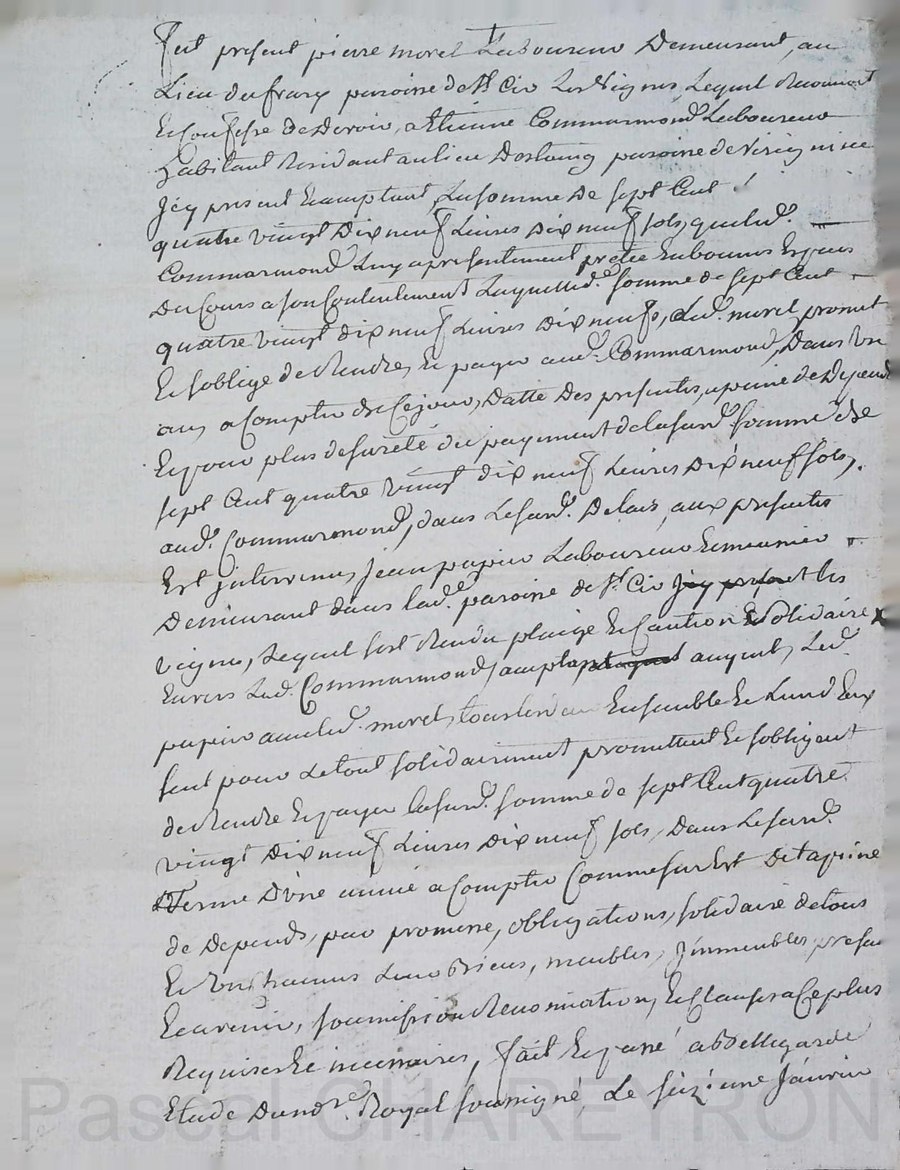 fut present pierre morel Laboureur Demeurant, au
Lieu du paroisse de St Cir Les Vignes Lequel Reconnoit
Et Confesse De Devoir, a Etienne Commarmond Laboureur
habitant Residant au lieu paroisse de
Jcy present Et acceptant, La somme De sept Cent
quatre vingt Dix neuf Livres Dix neuf sols, que led.
Commarmond Luy a presentement pretée En bonnes Especes
Du Cours a son Contentement Laquelle d. somme de sept Cent
quatre vingt dix neuf Livres Dix neuf s, Led. morel promet
Et soblige de Rendre, Et payer aud. Commarmond, Dans Un
an, a Compter de Ce jour, Datte Des presentes, a peine de Depends
Et pour plus de sureté du payement de la susd. somme de
sept Cent quatre vingt dix neuf Livres Dix neuf sols,
aud. Commarmond, dans Le susd. Delais, aux presentes
Est jntervenu, Jean papier Laboureur Et meunier
Demeurant dans lad. paroisse de St Cir les
vignes, Lequel sest Rendu pleige Et Caution Et Solidaire
Envers Led. Commarmond acceptant auquel, Led.
papier avec led. morel, tous les deux Ensemble Et Lun d Eux
seul pour Le tout solidairement promettent Et sobligent
de Rendre Et payer la susd. somme de sept Cent quatre
vingt Dix neuf Livres Dix neuf sols, Dans Le susd.
Terme D'une année a Compter Comme sus Est Dit a peine
de Depends, par promesse, obligations, solidaire de tous
Et Uns Chacuns Leurs Biens, meubles, Jmmeubles, presens
Et avenir, soumission Renonciation, Et Clauses a Ce plus
Requises Et necessaires, fait Et passé a Bellegarde
Etude Du not.re Royal soussigné, Le seizieme Janvier
Pascal CHAREYRON